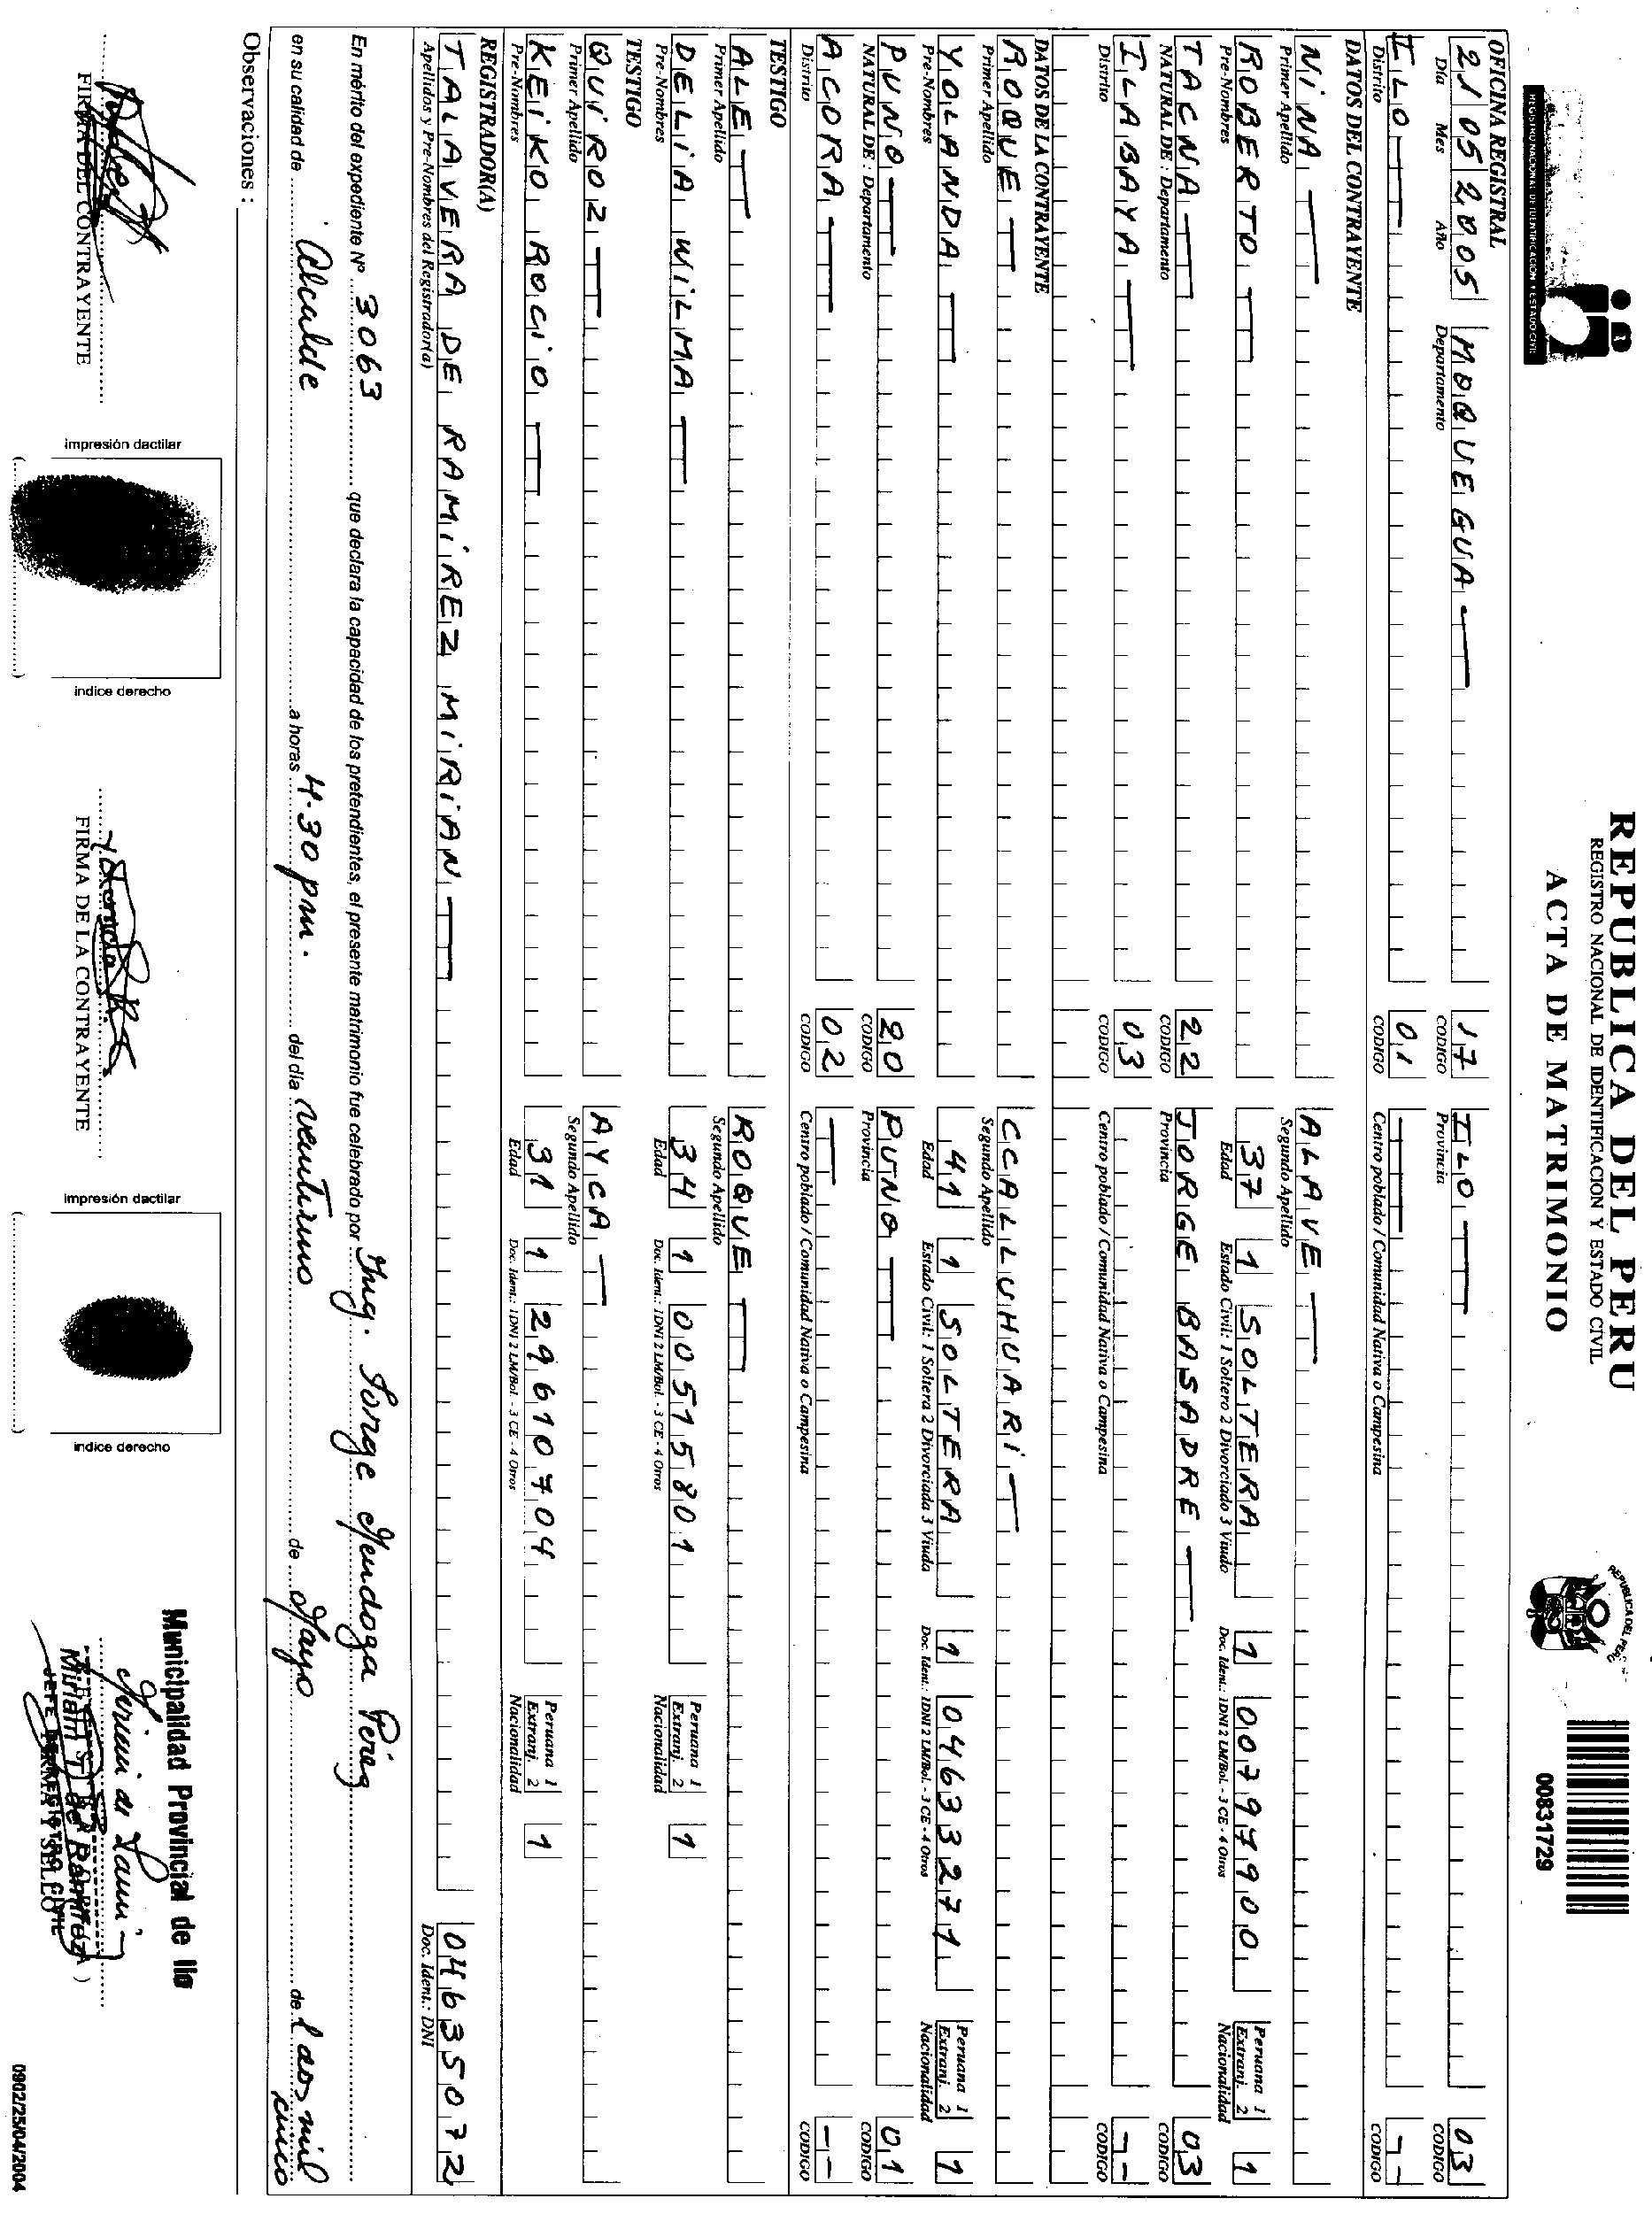 REGISTRO NACIONAL DE IDENTIFICACION Y ESTADO CIVIL
REPUBLICA DEL PERU
REGISTRO NACIONAL DE IDENTIFICACION Y ESTADO CIVIL
ACTA DE MATRIMONIO
REPUBLICA DEL PERU
00831729
OFICINA REGISTRAL
21 05 2005 MOQUEGUA 17 ILO 03
Día Mes Año Departamento CODIGO Provincia CODIGO
ILO 01 --
Distrito CODIGO Centro poblado / Comunidad Nativa o Campesina CODIGO
DATOS DEL CONTRAYENTE
NINA ALAVE
Primer Apellido Segundo Apellido
ROBERTO 37 1 SOLTERA 1 00797900 Peruana 1 Extranj. 2 1
Pre-Nombres Edad Estado Civil: 1 Soltero 2 Divorciado 3 Viudo Doc. Ident.: 1DNI 2 LM/Bol. - 3 CE - 4 Otros Nacionalidad
TACNA 22 JORGE BASADRE 03
NATURAL DE : Departamento CODIGO Provincia CODIGO
ILABAYA 03 --
Distrito CODIGO Centro poblado / Comunidad Nativa o Campesina CODIGO
DATOS DE LA CONTRAYENTE
ROQUE CCALLUHUARI
Primer Apellido Segundo Apellido
YOLANDA 41 1 SOLTERA 1 04633271 Peruana 1 Extranj. 2 1
Pre-Nombres Edad Estado Civil: 1 Soltera 2 Divorciada 3 Viuda Doc. Ident.: 1DNI 2 LM/Bol. - 3 CE - 4 Otros Nacionalidad
PUNO 20 PUNO 01
NATURAL DE : Departamento CODIGO Provincia CODIGO
ACORA 02 --
Distrito CODIGO Centro poblado / Comunidad Nativa o Campesina CODIGO
TESTIGO
ALE ROQUE
Primer Apellido Segundo Apellido
DELIA WILMA 34 1 00515801 Peruana 1 Extranj. 2 1
Pre-Nombres Edad Doc. Ident.: 1DNI 2 LM/Bol. - 3 CE - 4 Otros Nacionalidad
TESTIGO
QUIROZ AYCA
Primer Apellido Segundo Apellido
KEIKO ROCIO 31 1 29610704 Peruana 1 Extranj. 2 1
Pre-Nombres Edad Doc. Ident.: 1DNI 2 LM/Bol. - 3 CE - 4 Otros Nacionalidad
REGISTRADOR(A)
TALAVERA DE RAMIREZ MIRIAN 04635072
Apellidos y Pre-Nombres del Registrador(a) Doc. Ident.: DNI
En mérito del expediente Nº 3063 que declara la capacidad de los pretendientes, el presente matrimonio fue celebrado por Ing. Jorge Mendoza Pérez
en su calidad de Alcalde a horas 4.30 pm. del día veintiuno de Mayo del dos mil cinco
Observaciones :
Municipalidad Provincial de Ilo
impresión dactilar impresión dactilar
FIRMA DEL CONTRAYENTE FIRMA DE LA CONTRAYENTE
indice derecho indice derecho
Miriam T. de Ramirez
JEFE DE REGISTRO CIVIL
FIRMA Y SELLO
0902/25/04/2004